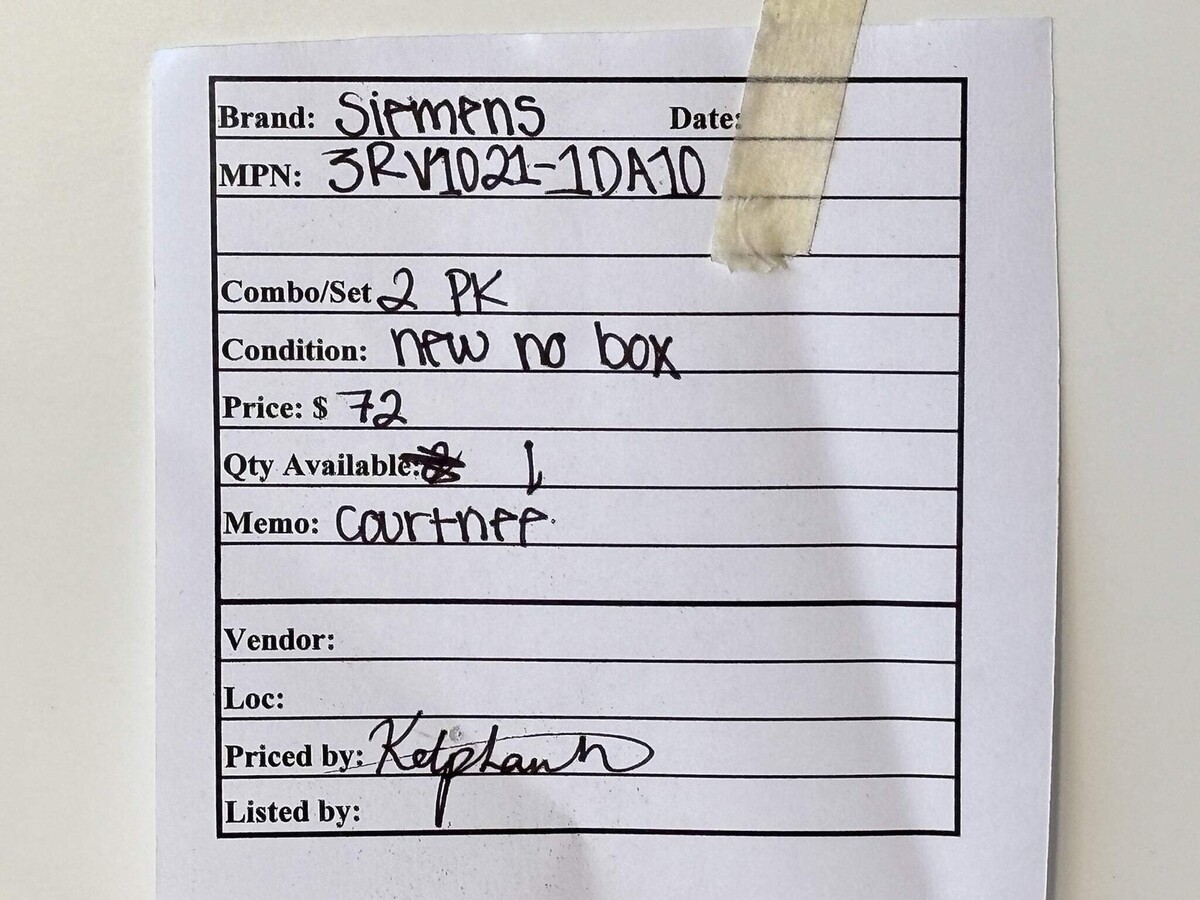 Brand: Siemens Date:
MPN: 3RV1021-1DA10
Combo/Set 2 PK
Condition: new no box
Price: $ 72
Qty Available: 1
Memo: Courtnee
Vendor:
Loc:
Priced by:
Listed by: